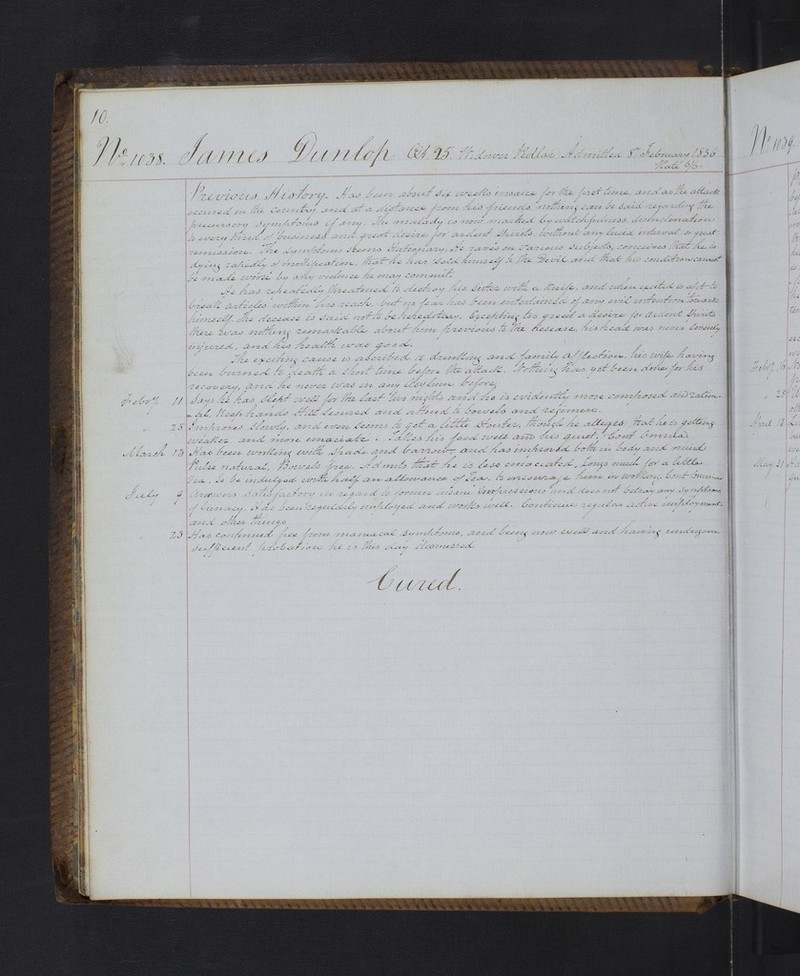 10.
No. 1038. James Dunlop Æt. 25. Widower Pedlar Admitted 8 February 1836
Rate 8/6
Previous History. Has been about six weeks insane for the first time and as the attack
occurred in the Country and at a distance from his friends, nothing can be said regarding the
precursory symptoms if any. The malady is now marked by watchfulness, disinclination
to every kind of business and great desire for ardent spirits, without any lucid interval or great
remission. The symptoms seems stationary, He raves on various subjects, conceives that he is
dying rapidly of mortification, that he has sold himself to the Devil and that his condition cannot
be made worse by any violence he may commit.
He has repeatedly threatened to destroy his sister with a knife, and when excited is apt to
break articles within his reach, but no fear has been entertained of any evil intention towards
himself. The disease is said not to be hereditary. Excepting too great a desire for ardent spirits
there was nothing remarkable about him previous to the disease, his head was never severely
injured, and his health was good.
The exciting cause is ascribed to drinking and family affliction, his wife having
been burned to death a short time before the attack. Nothing has yet been done for his
recovery, and he never was in any Asylum before.
Feby. 11 Says he has slept well for the last two nights and he is evidently more composed and ration-
-al. Keep hands still secured and attend to bowels and regimen.
" 25 Improves slowly, and even seems to get a little stouter, though he alleges that he is getting
weaker and more emaciate. Takes his food well and lies quiet, Cont Omnia
March 13 Has been working with spade and barrow and has improved both in body and mind
Pulse natural, Bowels free. Admits that he is less emaciated, Longs much for a little
Tea. To be indulged with half an allowance of Tea, to encourage him in working. Cont Omnia
July 9 Answers satisfactory in regard to former insane impressions and does not betray any symptoms
of lunacy. Has been regularly employed and works well. Continue regular active employment
and other things
23 Has continued free from maniacal symptoms, and being now well and having undergone
sufficient probation he is this day dismissed
Cured.
No. 1039
Feby. 16
" 25
April 13
May 21